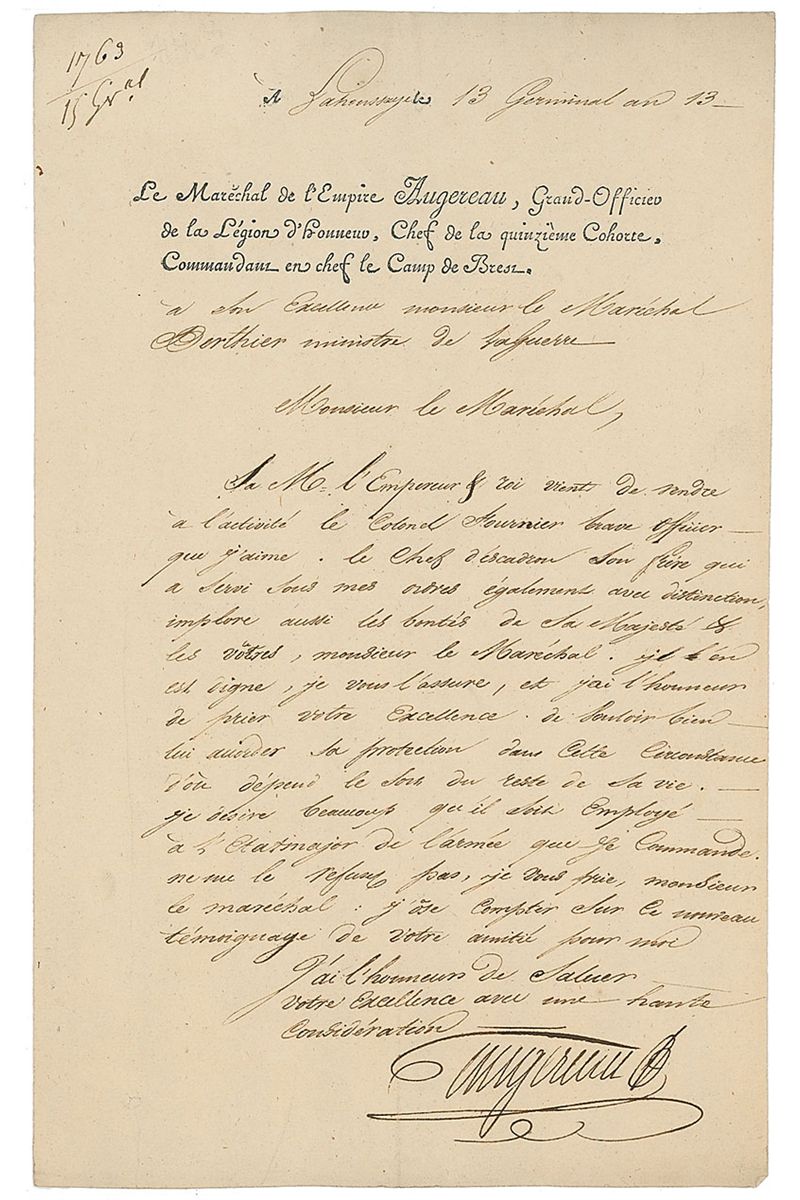 1763
15 Gr.al
A Lahoussaye le 13 Germinal an 13
Le Maréchal de l'Empire Augereau, Grand-Officier
de la Légion d'honneur, Chef de la quinzième Cohorte,
Commandant en chef le Camp de Brest.
a Son Excellence monsieur le Maréchal
Berthier ministre de la Guerre
Monsieur le Maréchal,
Sa M. l'Empereur & roi vient de rendre
à l'activité le Colonel Fournier brave officier
que j'aime. le Chef d'escadron son frère qui
a servi sous mes ordres également avec distinction,
implore aussi les bontés de Sa Majesté &
les vôtres, monsieur le Maréchal. il en
est digne, je vous l'assure, et j'ai l'honneur
de prier votre Excellence de vouloir bien
lui accorder sa protection dans cette Circonstance
d'où dépend le sort du reste de sa vie.
je désire beaucoup qu'il soit Employé
à l'Etatmajor de l'armée que je Commande.
ne me le refusez pas, je vous prie, monsieur
le maréchal : j'ôse Compter sur ce nouveau
témoignage de votre amitié pour moi
J'ai l'honneur de Saluer
votre Excellence avec une haute
Considération
Augereau